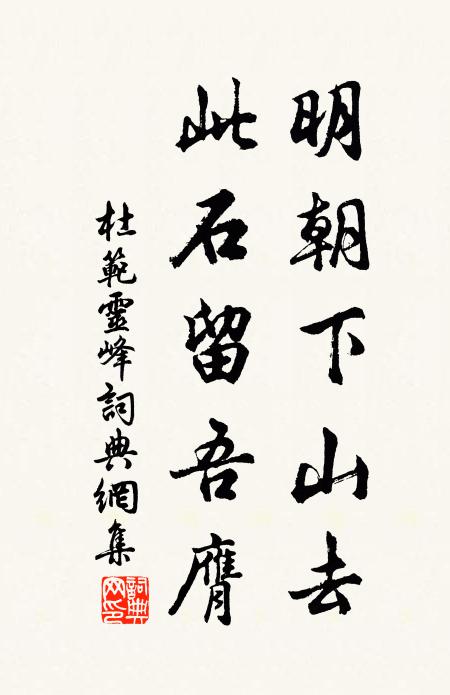 明朝下山去
此石留吾膺
杜範靈峰詞典網集
詞典網印